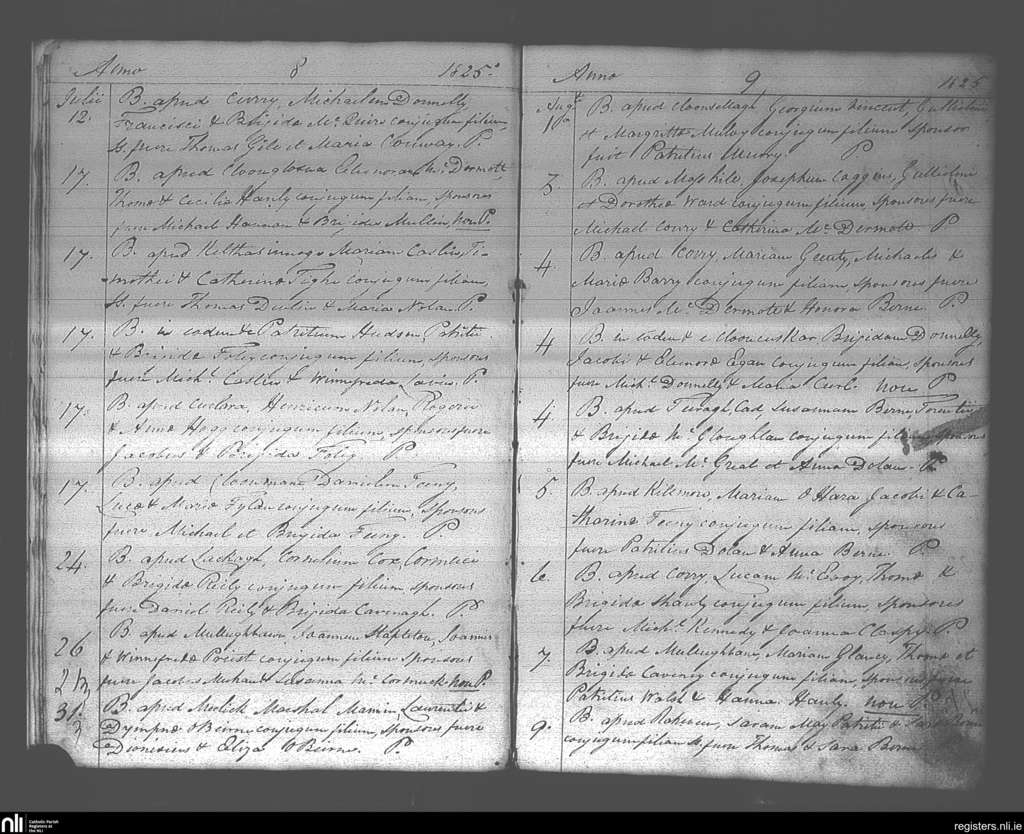 Anno 8 1825.
Julii 12. B. apud Curry, Michaelem Donnelly
Francisci & Brigida Mc conjugum filium,
Ss. fuere Thomas Gile et Maria Conway. P.
17. B. apud Eleonoram Mc Dermott,
Thoma & Cecilia Hanly conjugum filiam, sponsores
fuere Michael Hannan & Brigida Mullin, non P.
17. B. apud Mariam Caslin, Ti-
mothei & Catherina Tighe conjugum filiam,
Ss. fuere Thomas & Maria Nolan. P.
17. B. in eadem Patritium Hudson, Patritii
& Brigida Foley conjugum filium, sponsores
fuere Michl. Caslin & Winnefrida Lavin. P.
17. B. apud Henricum Nolan, Rogerii
& Anna Hogg conjugum filium, sponsores fuere
Jacobus & Brigida Foley P.
17. B. apud Danielem Feeny,
Luca & Maria conjugum filium, sponsores
fuere Michael et Brigida Feeny. P.
24. B. apud Lackagh, Cornelium Cox, Cormici
& Brigida Reily conjugum filium, sponsores
fuere Daniel Reily & Brigida Cavenagh. P.
26 B. apud Mullughbawn, Joannem Stapleton, Joannis
& Winnefrida Priest conjugum filium sponsores
fuere Jacobus & Susanna Mc Cormuck non P.
31. B. apud Meelick Marshal Laurentii &
Dympna O Beirne conjugum filium, sponsores fuere
Dionesius & Eliza O Beirne. P.
Anno 9 1825
Augt. B. apud Cloonsellagh, Georgium
& Margritta Mulvy conjugum filium sponsor
fuit Patritius Mulvy. P
3. B. apud Josephum Coggens, Gulielmi
et Dorothia Ward conjugum filium, sponsores fuere
Michael Cowry & Catherina Mc Dermott P
4. B. apud Corry, Mariam Geelty, Michaelis &
Maria Barry conjugum filiam, sponsores fuere
Joannes Mc Dermott & Honora Berne. P.
4 B. in eadem Brigidam Donnelly,
Jacobi & Eleonora Egan conjugum filiam, sponsores
fuere Michl. Donnelly & Maria non P
4 B. apud Susannam Berne,
& Brigida Mc Gloughlan conjugum filiam, sponsores
fuere Michael Mc Great et Anna Dolan. P.
5. B. apud Kilmore, Mariam O Hara Jacobi & Ca-
tharina Feeny conjugum filiam, sponsores
fuere Patritius Dolan & Anna Berne. P.
6. B. apud Corry, Lucam Mc Evoy, Thoma &
Brigida Shanly conjugum filium, sponsores
fuere Michl. Kennedy & Joanna P.
7. B. apud Mullughbawn, Mariam Glancy, Thoma et
Brigida conjugum filiam, sponsores fuere
Patritius Walsh & Hanna Hanly. non P.
9. B. apud Saram May Patritii &
conjugum filiam Ss. fuere Thomas & Sara Berne
nli Catholic Parish
Registers at
the NLI
registers.nli.ie